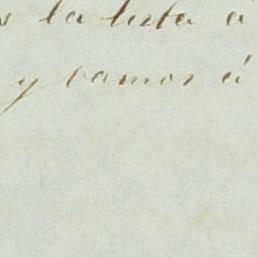 s la lista á
y vamos á